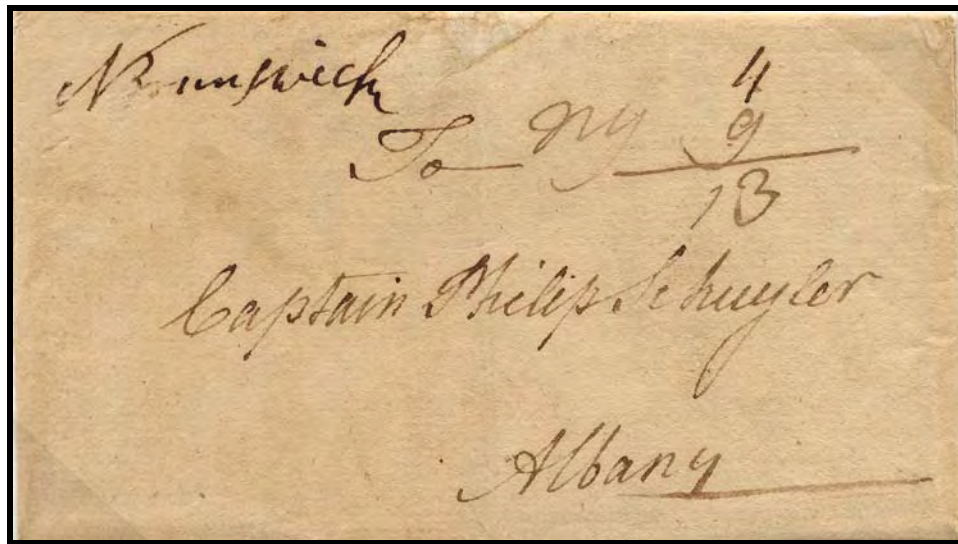 NBrunswick 4
To NY 9
13
Captain Philip Schuyler
Albany